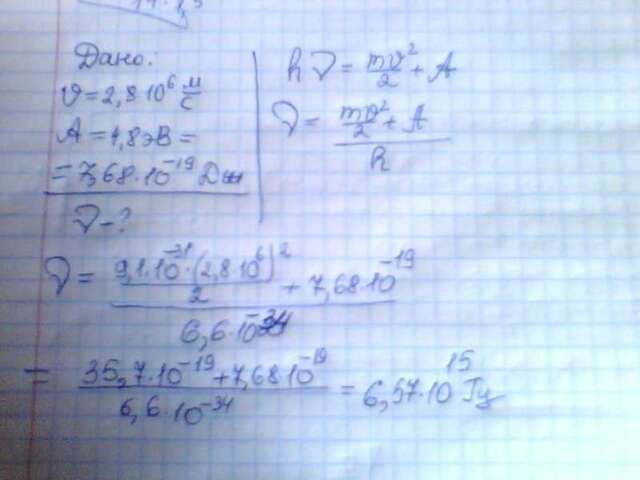 Дано:
υ = 2,8·10⁶ м/с
A = 4,8 эВ =
= 7,68·10⁻¹⁹ Дж
ν - ?
hν = mυ²/2 + A
ν = (mυ²/2 + A)/h
ν = (9,1·10⁻³¹·(2,8·10⁶)²/2 + 7,68·10⁻¹⁹)/(6,6·10⁻³⁴)
= (35,7·10⁻¹⁹ + 7,68·10⁻¹⁹)/(6,6·10⁻³⁴) = 6,57·10¹⁵ Гц